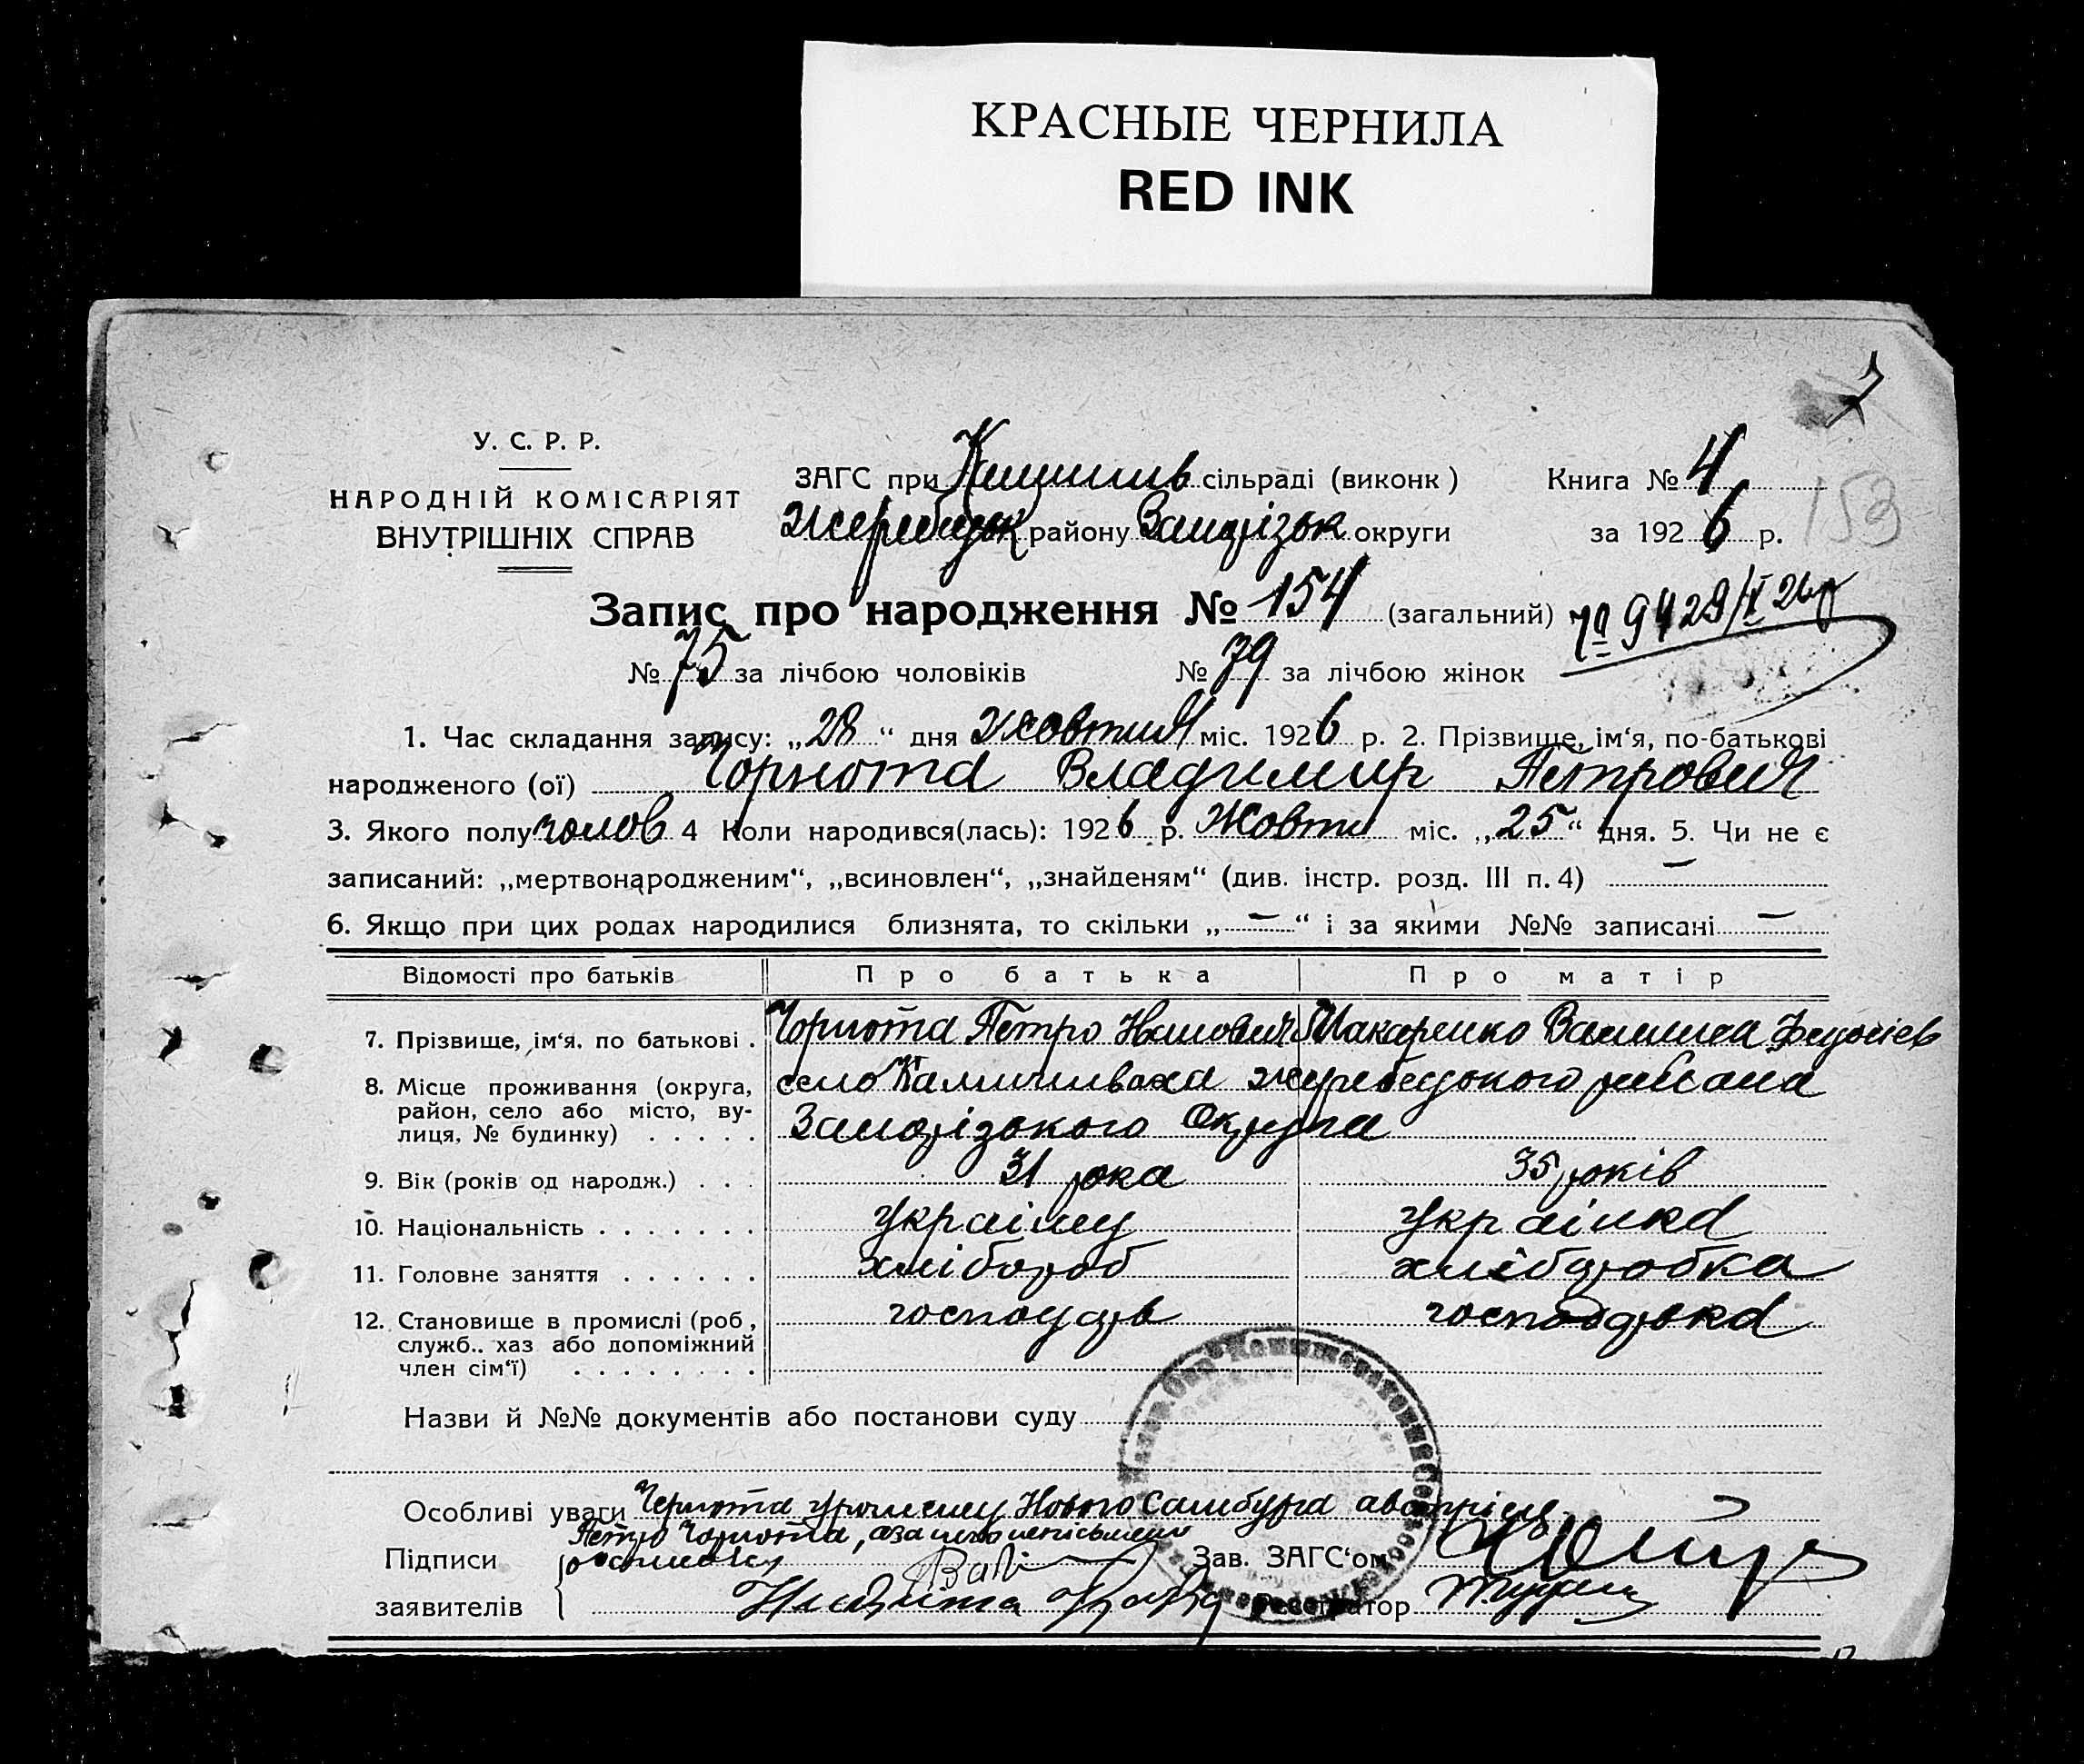 КРАСНЫЕ ЧЕРНИЛА
RED INK
У. С. Р. Р.
НАРОДНІЙ КОМІСАРІЯТ
ВНУТРІШНІХ СПРАВ
ЗАГС при сільраді (виконк)
Жеребецьк району Запорізьк округи
Книга № 4
за 1926 р.
153
Запис про народження № 154 (загальний)
№ 75 за лічбою чоловіків № 79 за лічбою жінок
1. Час складання запису: „28“ дня Жовтня міс. 1926 р. 2. Прізвище, ім‘я, по-батькові
народженого (ої) Чорнота Владимир Петрович
3. Якого полу чолов 4 Коли народився(лась): 1926 р. Жовтн міс. „25“ дня. 5. Чи не є
записаний: „мертвонародженим“, „всиновлен“, „знайденям“ (див. інстр. розд. III п. 4) —
6. Якщо при цих родах народилися близнята, то скільки „—“ і за якими №№ записані —
Відомості про батьків Про батька Про матір
7. Прізвище, ім‘я, по батькові . Чорнота Петро Иванович Макаренко Василиса Федосіев
8. Місце проживання (округа, село Камишиваха жеребецького района
район, село або місто, ву-
лиця, № будинку) . . . . . Запорізького Округа
9. Вік (років од народж.) . . . 31 рока 35 років
10. Національність . . . . . . . Украінец Украінка
11. Головне заняття . . . . . . хлібороб хліборобка
12. Становище в промислі (роб, господарь господарка
служб.. хаз або допоміжний
член сім‘ї) . . . . . . . .
Назви й №№ документів або постанови суду
Особливі уваги Чорнота Нового Самбура австрієц
Петро Чорнота, а за
Підписи
заявителів
Зав. ЗАГС‘ом
Реєстратор